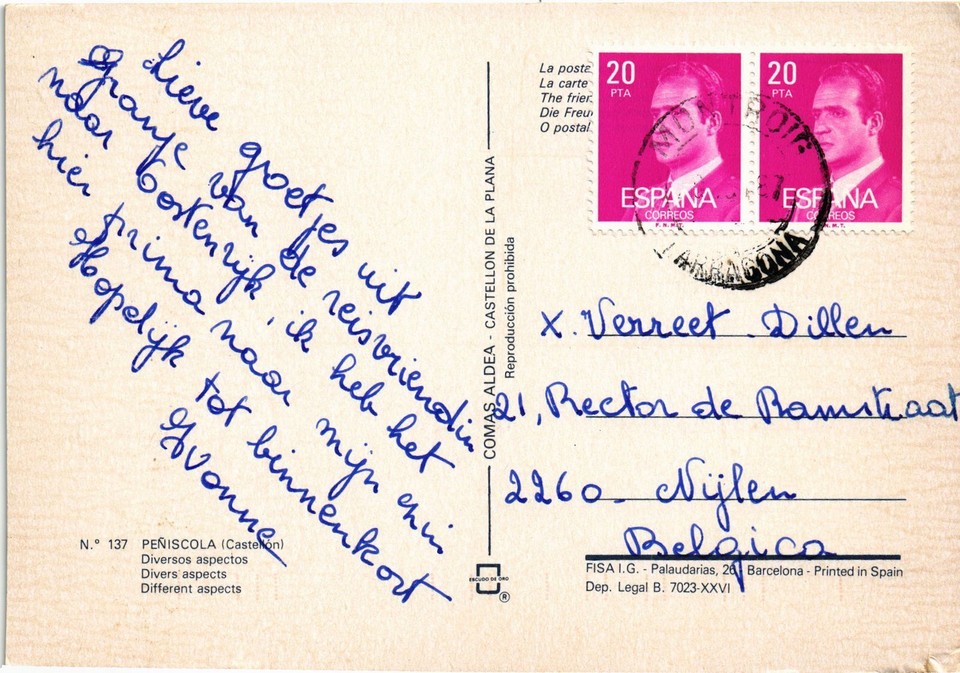 Lieve groetjes uit
Oranje van de reisvriendin
naar Oostenrijk, ik heb het
hier prima naar mijn zin
Hopelijk tot binnenkort
Yvonne
N.° 137 PEÑISCOLA (Castellón)
Diversos aspectos
Divers aspects
Different aspects
COMAS ALDEA - CASTELLON DE LA PLANA
Reproducción prohibida
ESCUDO DE ORO
®
La posta
La carte
The frien
Die Freu
O postal
20
PTA
ESPAÑA
CORREOS
F.N.M.T.
20
PTA
ESPAÑA
CORREOS
F.N.M.T.
MONTROIG
TARRAGONA
X. Verreet-Dillen
21, Rector de Ramstraat
2260 - Nijlen
Belgica
FISA I.G. - Palaudarias, 26 - Barcelona - Printed in Spain
Dep. Legal B. 7023-XXVI